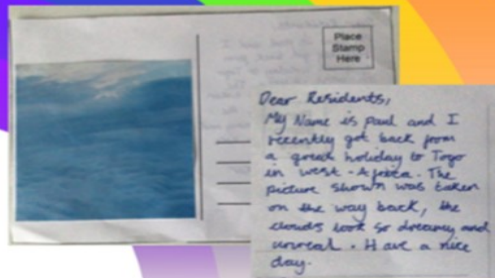 Place
Stamp
Here
Dear Residents,
My Name is paul and I
recently got back from
a great holiday to Togo
in west - Africa. The
picture shown was taken
on the way back, the
clouds look so dreamy and
unreal. Have a nice
day.